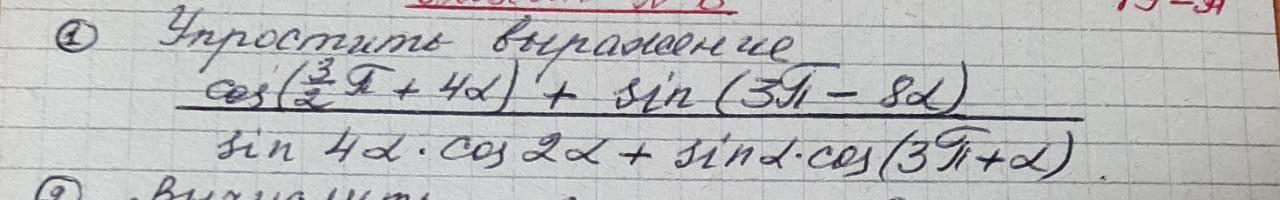 ① Упростить выражение
cos(3/2 π + 4α) + sin(3π - 8α)
sin 4α · cos 2α + sin α · cos(3π + α).
② Вычислить